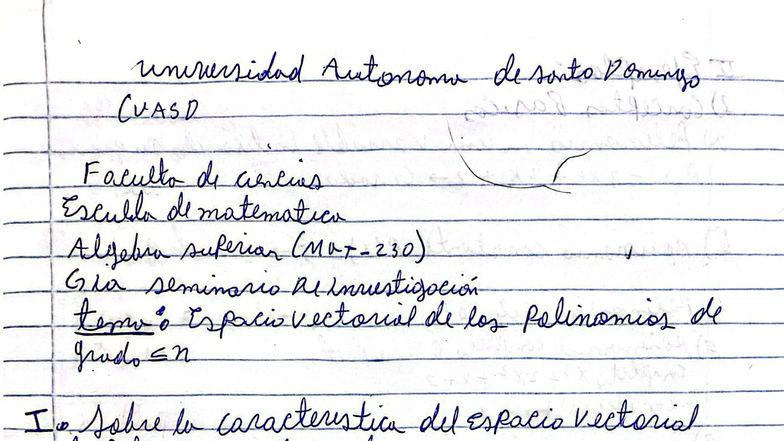 Universidad Autonoma de santo Domingo
(UASD
Faculta de ciencias
Escuela de matematica
Algebra superior (Mat-230)
Gia seminario De investigación
tema: Espacio vectorial de los Polinomios de
grado ≤ n
I. Sobre la caracteristica del Espacio vectorial